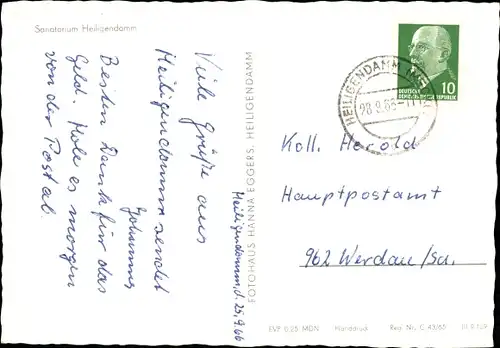 Sanatorium Heiligendamm
Viele Grüße aus
Heiligendamm sendet
Johannes
Besten Dank für das
Geld. Hole es morgen
von der Post ab.
Heiligendamm, d. 25.9.66
FOTOHAUS HANNA EGGERS, HEILIGENDAMM
HEILIGENDAMM
28.9.66
10
DEUTSCHE
DEMOKRATISCHE REPUBLIK
Koll. Herold
Hauptpostamt
962 Werdau/Sa.
EVP 0,25 MDN Handabzug Reg. Nr. G 43/65 III 9 159